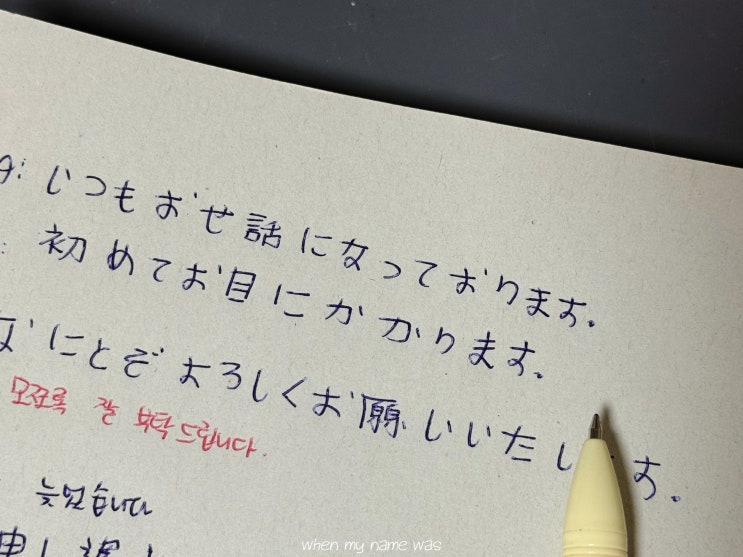 いつもおせ話になっております。
初めてお目にかかります。
なにとぞよろしくお願いいたし す。
모쪼록 잘 부탁드립니다.
늦었습니다
申し
when my name was